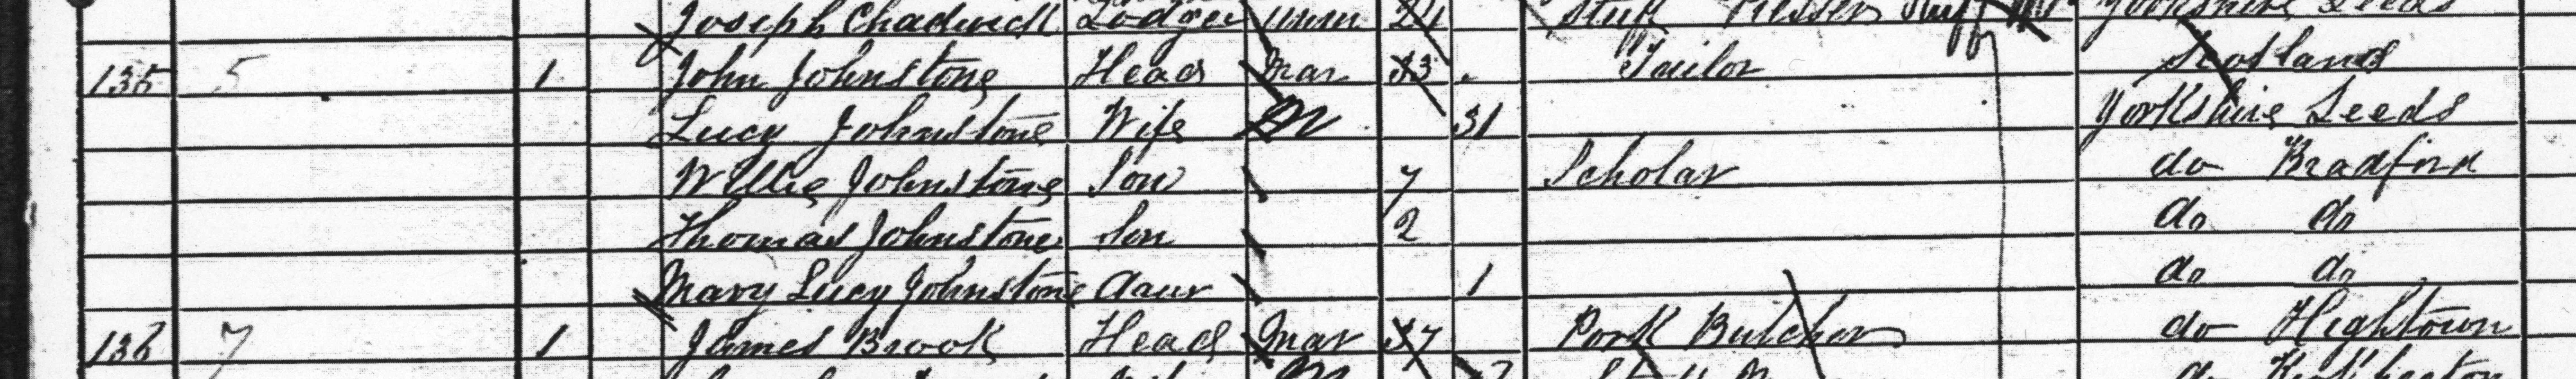 Joseph Chadwick Lodger unm 24 Stuff Presser Yorkshire Leeds
135 5 1 John Johnstone Head Mar 33 Tailor Scotland
Lucy Johnstone Wife M 31 Yorkshire Leeds
Willie Johnstone Son 7 Scholar do Bradford
Thomas Johnstone Son 2 do do
Mary Lucy Johnstone Daur 1 do do
136 7 1 James Brook Head Mar 37 Pork Butcher do Hightown